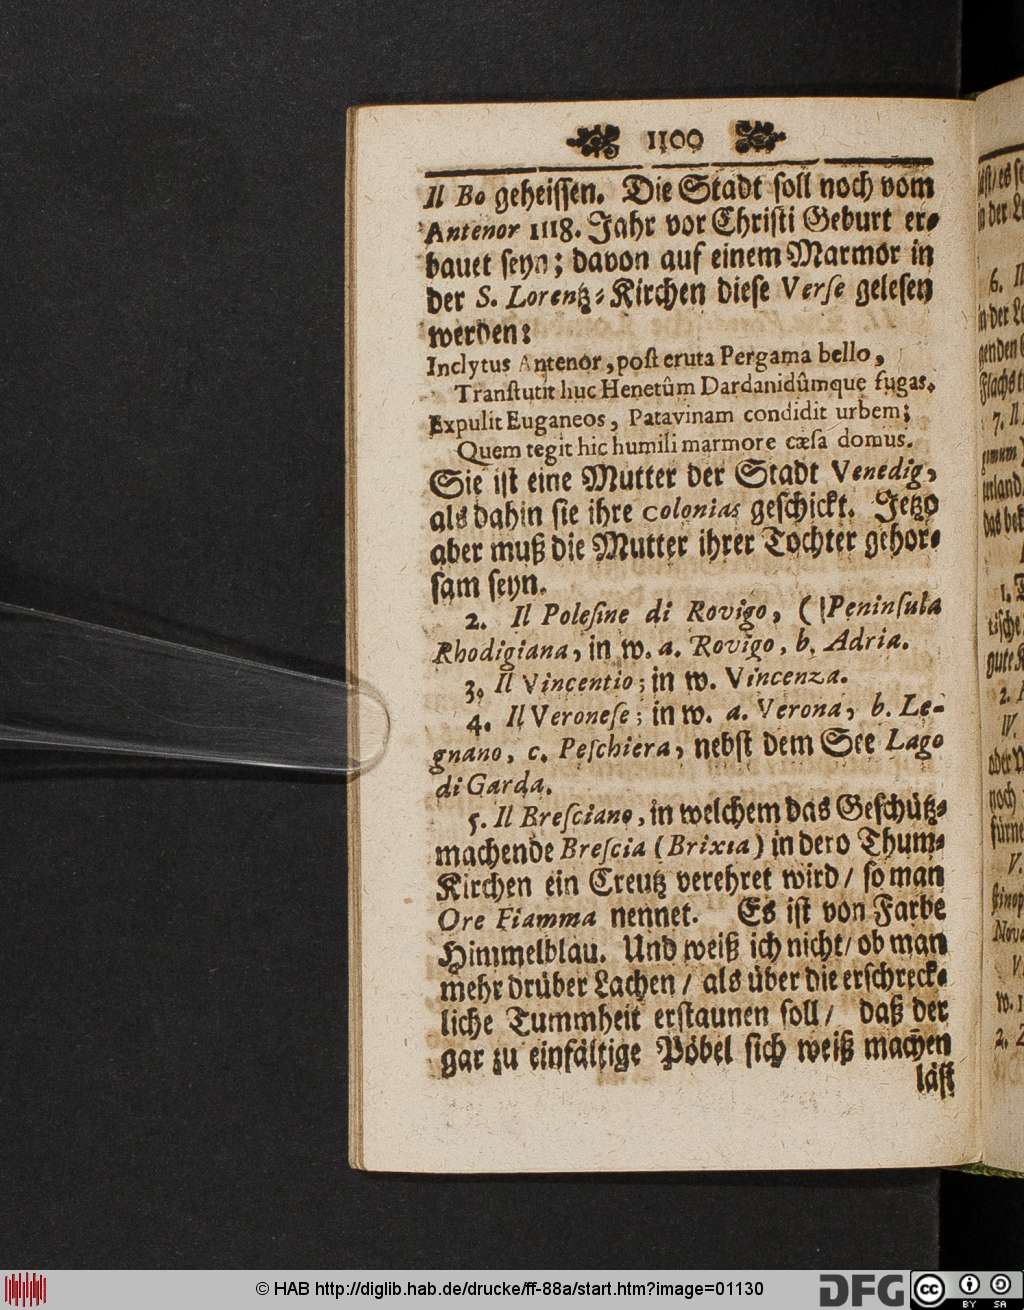 1100
Il Bo geheissen. Die Stadt soll noch vom
Antenor 1118. Jahr vor Christi Geburt er-
bauet seyn; davon auf einem Marmor in
der S. Lorentz-Kirchen diese Verse gelesen
werden:
Inclytus Antenor, post eruta Pergama bello,
Transtutit huc Henetûm Dardanidûmque fugas.
Expulit Euganeos, Patavinam condidit urbem;
Quem tegit hic humili marmore cæsa domus.
Sie ist eine Mutter der Stadt Venedig,
als dahin sie ihre colonias geschickt. Jetzo
aber muß die Mutter ihrer Tochter gehor-
sam seyn.
2. Il Polesine di Rovigo, (Peninsula
Rhodigiana, in w. a. Rovigo, b. Adria.
3. Il Vincentio; in w. Vincenza.
4. Il Veronese; in w. a. Verona, b. Le-
gnano, c. Peschiera, nebst dem See Lago
di Garda.
5. Il Bresciano, in welchem das Geschütz-
machende Brescia (Brixia) in dero Thum-
Kirchen ein Creutz verehret wird / so man
Ore Fiamma nennet. Es ist von Farbe
Himmelblau. Und weiß ich nicht / ob man
mehr drüber Lachen / als über die erschreck-
liche Tummheit erstaunen soll / daß der
gar zu einfältige Pöbel sich weiß machen
läst
© HAB http://diglib.hab.de/drucke/ff-88a/start.htm?image=01130
DFG
cc
BY SA